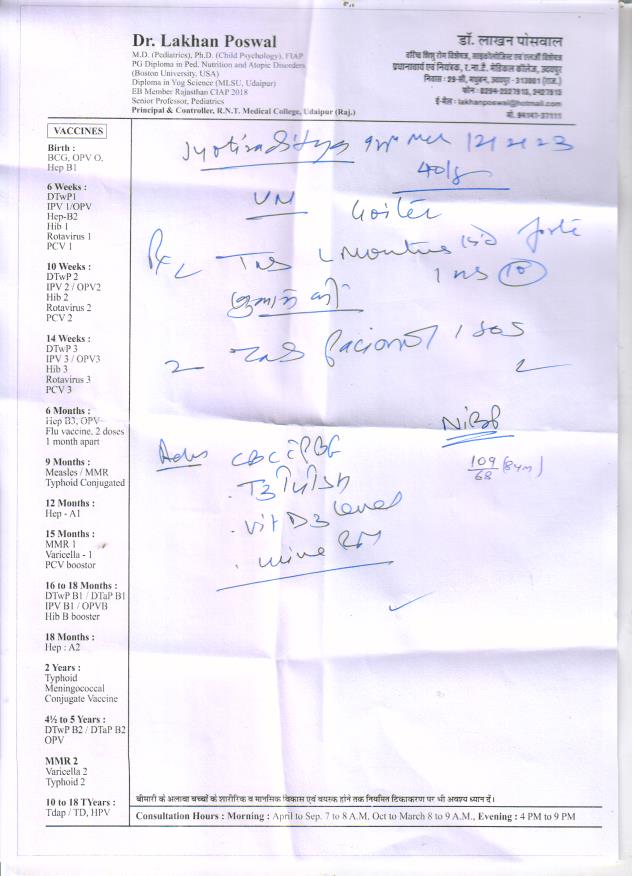 Dr. Lakhan Poswal
M.D. (Pediatrics), Ph.D. (Child Psychology), FIAP
PG Diploma in Ped. Nutrition and Atopic Disorders
(Boston University, USA)
Diploma in Yog Science (MLSU, Udaipur)
EB Member Rajasthan CIAP 2018
Senior Professor, Pediatrics
Principal & Controller, R.N.T. Medical College, Udaipur (Raj.)
डॉ. लाखन पोसवाल
वरिष्ठ शिशु रोग विशेषज्ञ, साइकोलोजिस्ट एवं एलर्जी विशेषज्ञ
प्रधानाचार्य एवं नियंत्रक, र.ना.टै. मेडिकल कॉलेज, उदयपुर
निवास : 29-सी, मधुबन, उदयपुर - 313001 (राज.)
फोन : 0294-2527613, 2427613
ई-मेल : lakhanposwal@hotmail.com
मो. 94147-37111
VACCINES
Birth :
BCG, OPV O,
Hep B1
6 Weeks :
DTwP1
IPV 1/OPV
Hep-B2
Hib 1
Rotavirus 1
PCV 1
10 Weeks :
DTwP 2
IPV 2 / OPV2
Hib 2
Rotavirus 2
PCV 2
14 Weeks :
DTwP 3
IPV 3 / OPV3
Hib 3
Rotavirus 3
PCV 3
6 Months :
Hep B3, OPV
Flu vaccine, 2 doses
1 month apart
9 Months :
Measles / MMR
Typhoid Conjugated
12 Months :
Hep - A1
15 Months :
MMR 1
Varicella - 1
PCV boostor
16 to 18 Months :
DTwP B1 / DTaP B1
IPV B1 / OPVB
Hib B booster
18 Months :
Hep : A2
2 Years :
Typhoid
Meningococcal
Conjugate Vaccine
4½ to 5 Years :
DTwP B2 / DTaP B2
OPV
MMR 2
Varicella 2
Typhoid 2
10 to 18 TYears :
Tdap / TD, HPV
Jyotiraditya 12/2/23
Goiter
Rx forte
10
1 SOS
NiBP
109/68
Adv CBC c PBF
. T3 T4 TSH
. Vit D3 level
. urine RM
बीमारी के अलावा बच्चों के शारीरिक व मानसिक विकास एवं वयस्क होने तक नियमित टिकाकरण पर भी अवश्य ध्यान दें।
Consultation Hours : Morning : April to Sep. 7 to 8 A.M. Oct to March 8 to 9 A.M., Evening : 4 PM to 9 PM